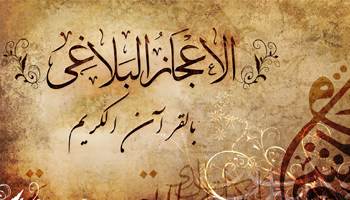 الاعجازُ البَلاغِى
بالقرآن الكريم